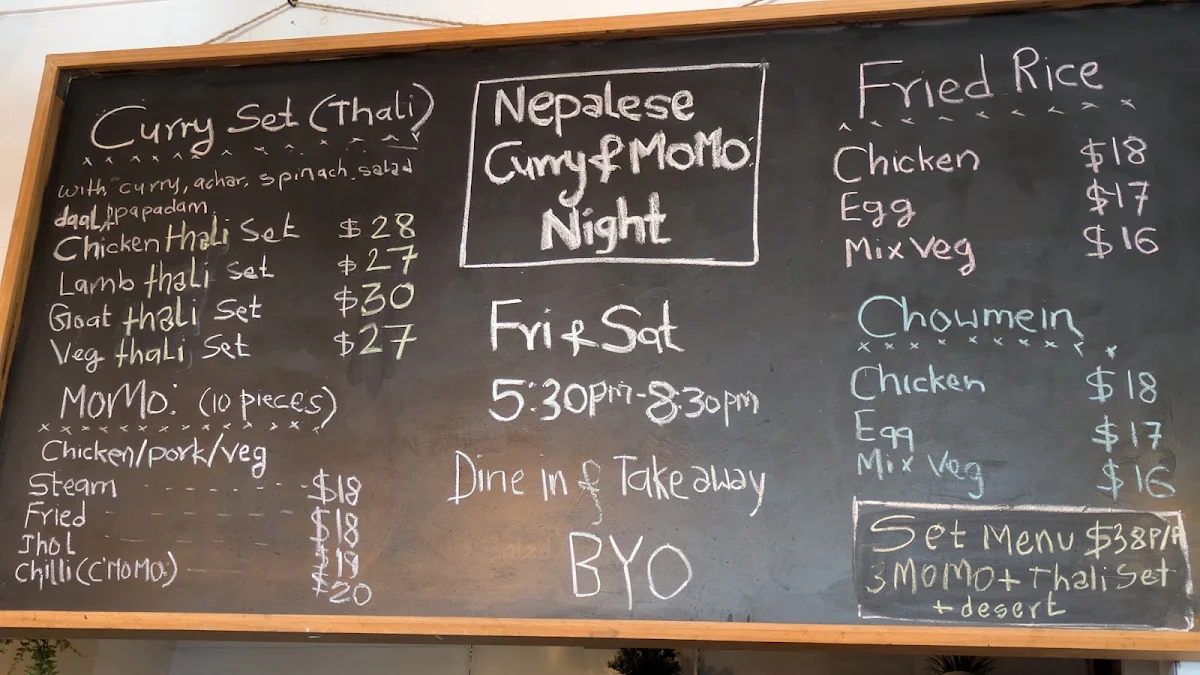 Curry Set (Thali)
with curry, achar, spinach, salad
daal, papadam
Chicken thali Set $28
Lamb thali set $27
Goat thali Set $30
Veg thali Set $27
MoMo: (10 pieces)
Chicken/pork/veg
Steam $18
Fried $18
Jhol $19
Chilli (C'MoMo:) $20
Nepalese
Curry & MoMo
Night
Fri & Sat
5:30pm-8:30pm
Dine In & Takeaway
BYO
Fried Rice
Chicken $18
Egg $17
Mix Veg $16
Chowmein
Chicken $18
Egg $17
Mix Veg $16
Set Menu $38P/P
3 MOMO + Thali Set
+ desert